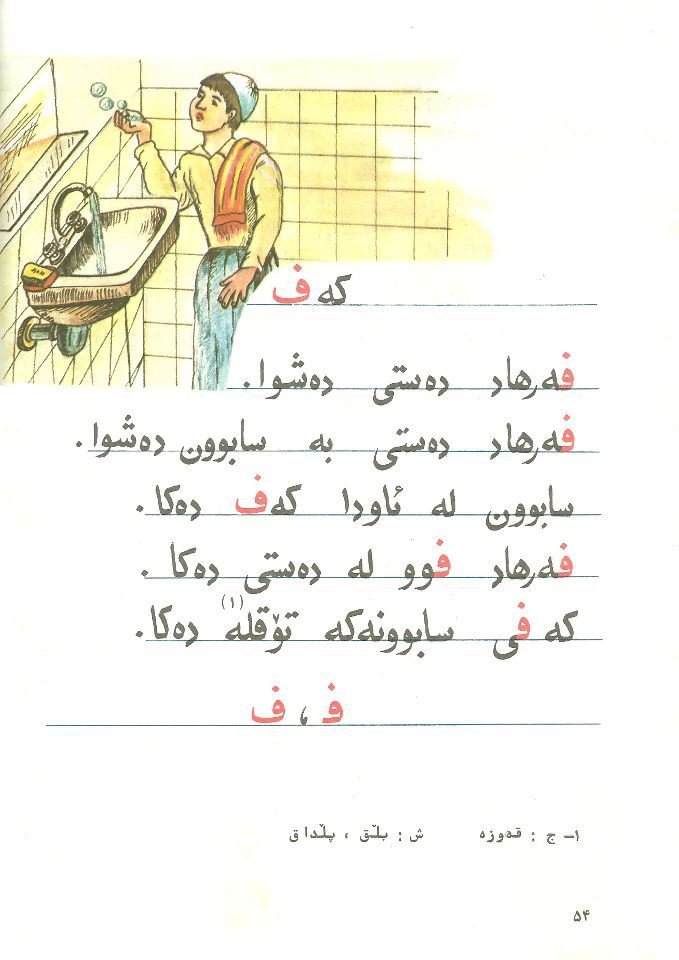 کەف
فەرهاد دەستی دەشوا.
فەرهاد دەستی بە سابوون دەشوا.
سابوون لە ئاودا کەف دەکا.
فەرهاد فوو لە دەستی دەکا.
کەفی سابوونەکە تۆقلە(١) دەکا.
ف ، ف
١- ج : قەوزە ش : بڵق ، پڵداق
۵۴